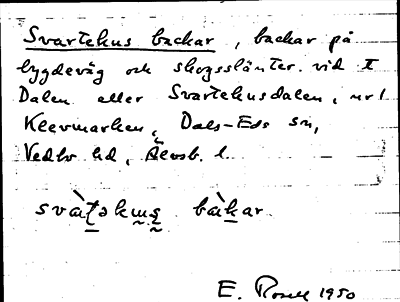 Svartehus backar, backar på
bygdeväg och skogsslänter vid I
Dalen eller Svartehusdalen, nr 1
Klevmarken, Dals-Eds sn,
Vedbo hd, Älvsb. l.
svàt̠əkɯ̰ʂ̰ bàk̠ar
E. Rosell 1950